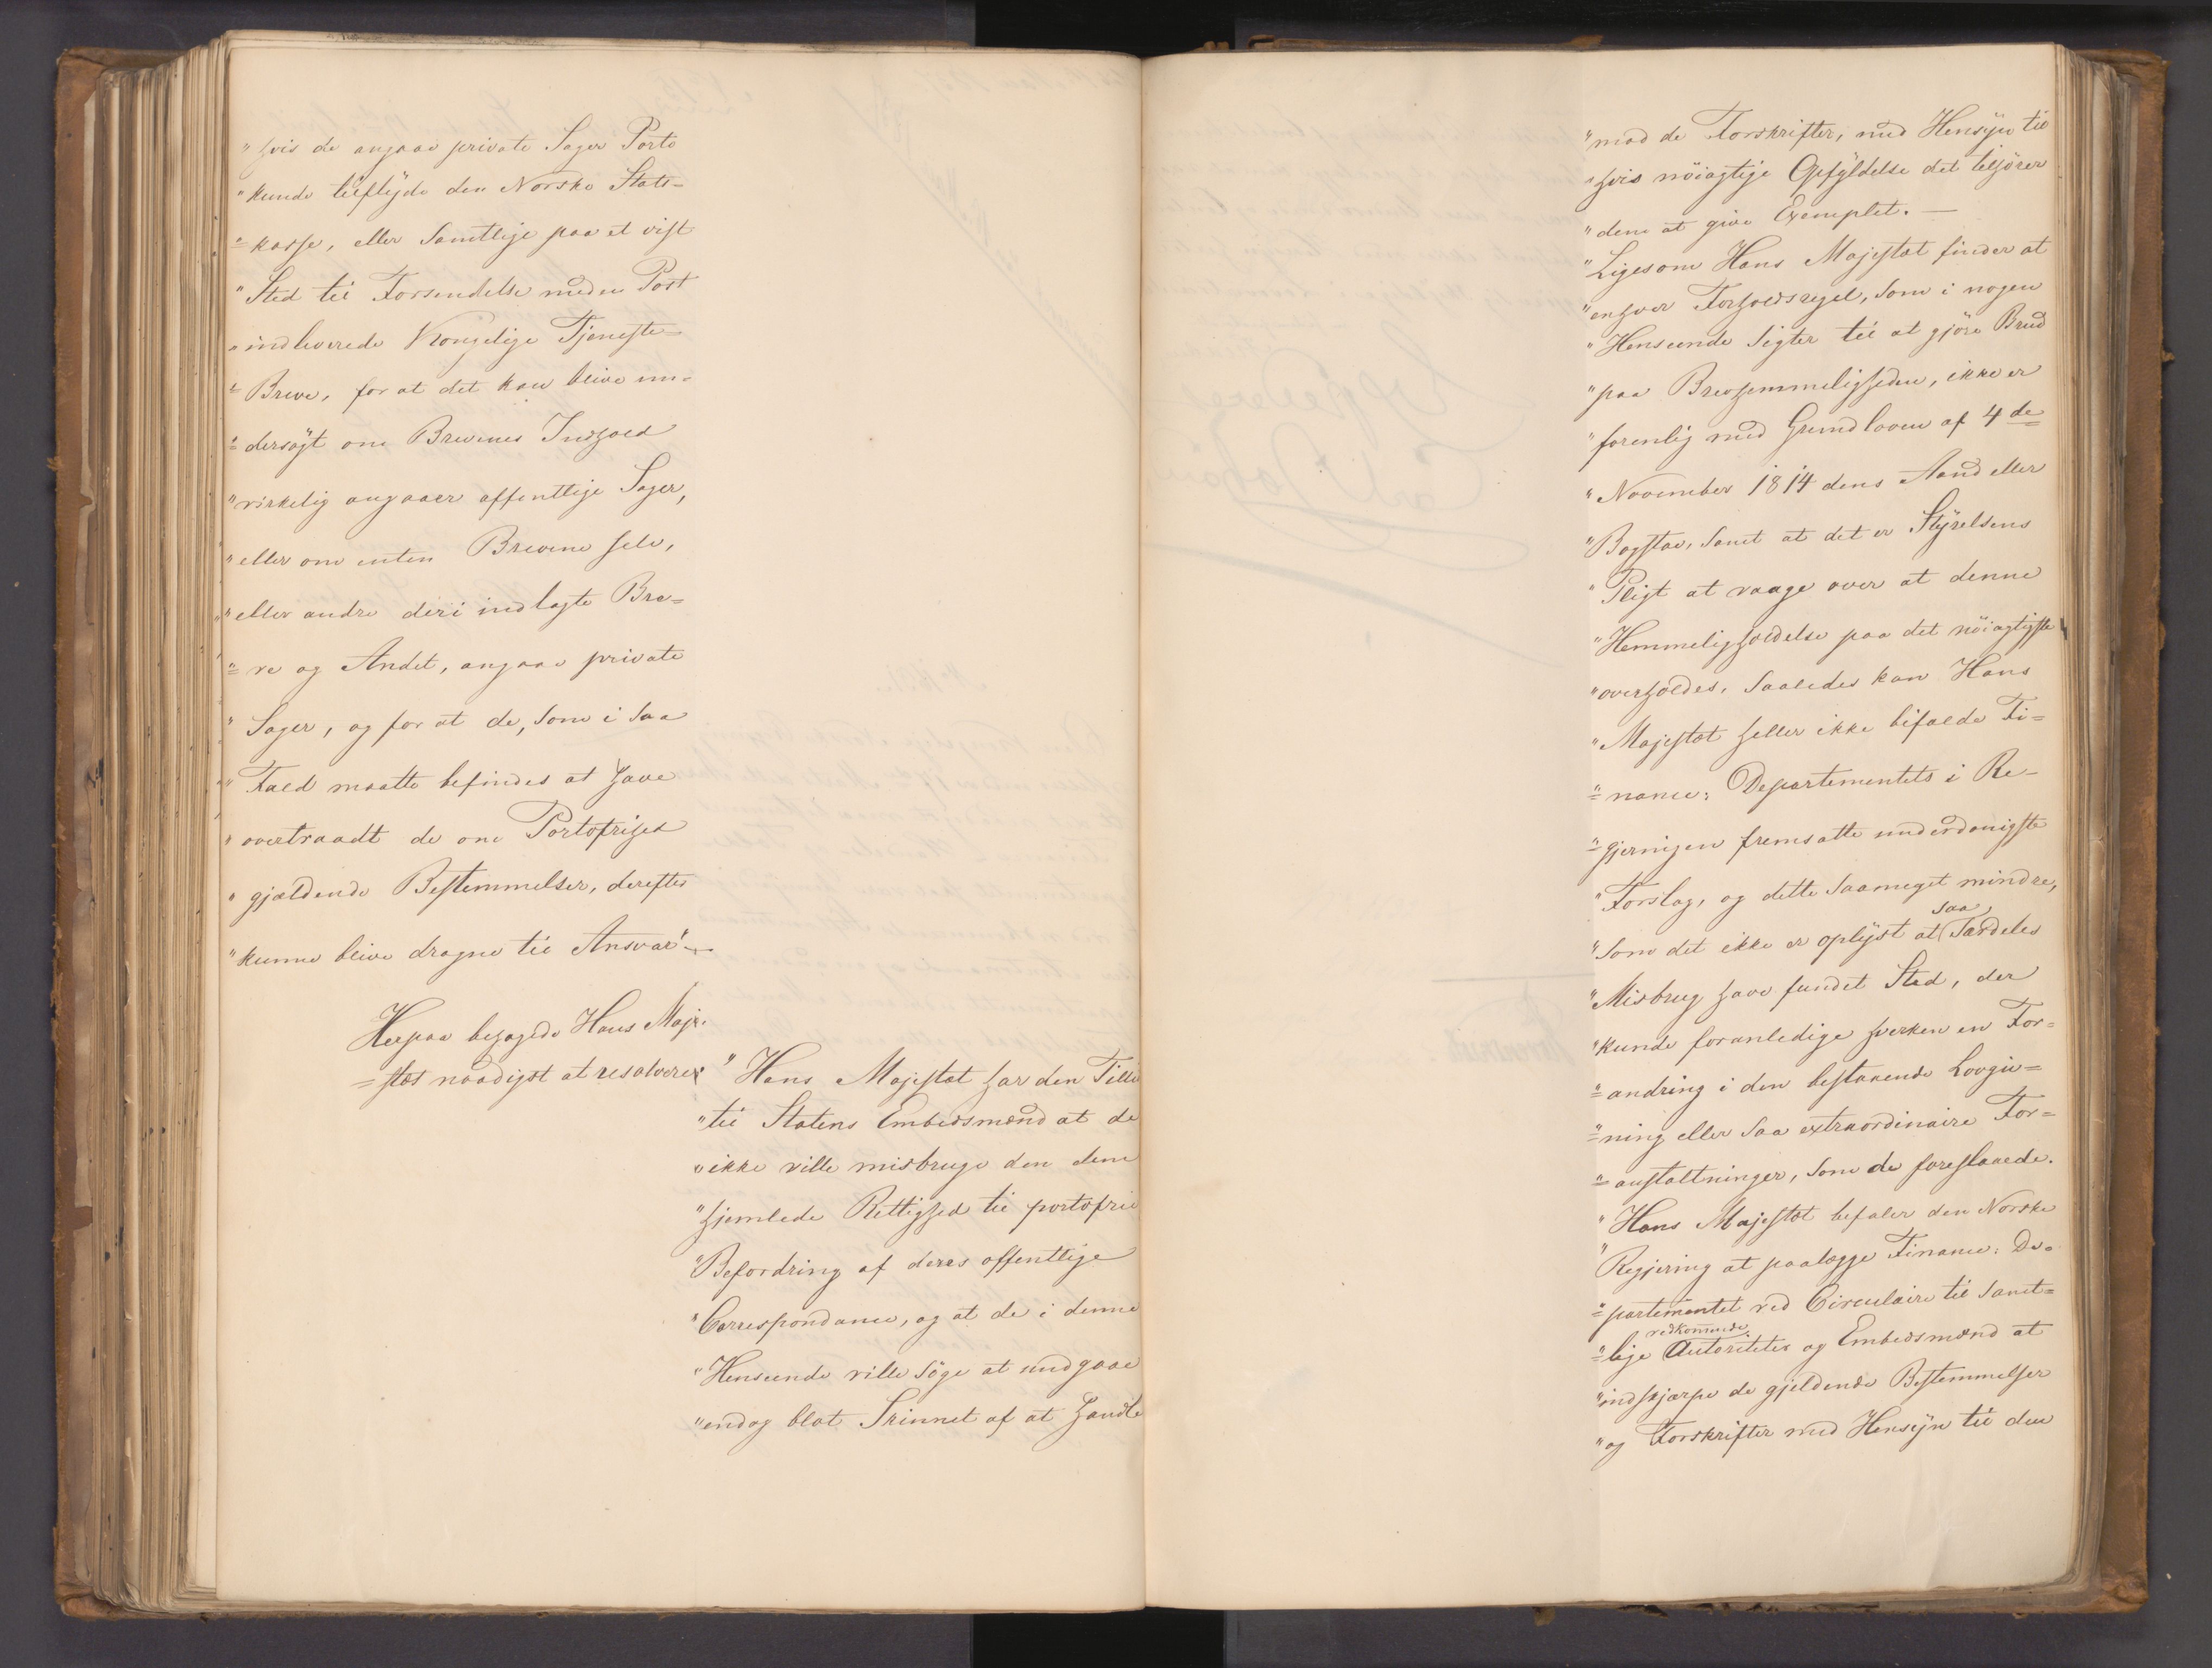 "hvis de angaae private Sager Porto
"kunde tilflyde den Norske Stats-
"=kasse, eller samtlige paa et vist
"Sted til Forsendelse med en Post
"indleverede Kongelige Tjeneste-
"=Breve, for at det kan blive un-
"=dersøgt om Brevenes Indhold
"virkelig angaaer offentlige Sager,
"eller om enten Brevene selv,
"eller andre deri indlagte Bre=
"=ve og Andet, angaae private
"Sager, og for at de, som i saa
"Fald maatte befindes at have
"overtraadt de om Portofrihed
"gjældende Bestemmelser, derefter
"kunne blive dragne til Ansvar"
Herpaa behagede Hans Maje-
=stæt naadigst at resolvere:
"Hans Majestæt har den Tillid
"til Statens Embedsmænd at de
"ikke ville misbruge den dem
"hjemlede Rettighed til portofrie
"Befordring af deres offentlige
"Correspondance, og at de i denne
"Henseende ville søge at undgaae
"endog blot Skinnet af at handle
"mod de Forskrifter, med Hensyn til
"hvis nöiagtige Opfyldelse det tilhörer
"dem at give Exemplet. —
"Ligesom Hans Majestæt finder at
"enhver Forholdsregel, som i nogen
"Henseende sigter til at gjöre Brud
"paa Brevhemmeligheden, ikke er
"forenlig med Grundloven af 4de
"November 1814 dens Aand eller
"Bogstav, samt at det er Styrelsens
"Pligt at vaage over at denne
"Hemmeligholdelse paa det nöiagtigste
"overholdes, saaledes kan Hans
"Majestæt heller ikke bifalde Fi=
"=nance: Departementets i Re-
"=gjeringen fremsatte underdanigste
"Forslag, og dette saameget mindre,
"som det ikke er oplyst at saa særdeles
"Misbrug have fundet Sted, der
"kunde foranledige hverken en For=
"=andring i den bestaaende Lovgiv=
"=ning eller saa extraordinaire For=
"=anstaltninger, som de foreslaaede.
"Hans Majestæt befaler den Norske
"Regjering at paalægge Finance: De=
"=partementet ved Circulaire til samt=
"=lige vedkommende Autoriteter og Embedsmænd at
"indskjærpe de gjeldende Bestemmelser
"og Forskrifter med Hensyn til den